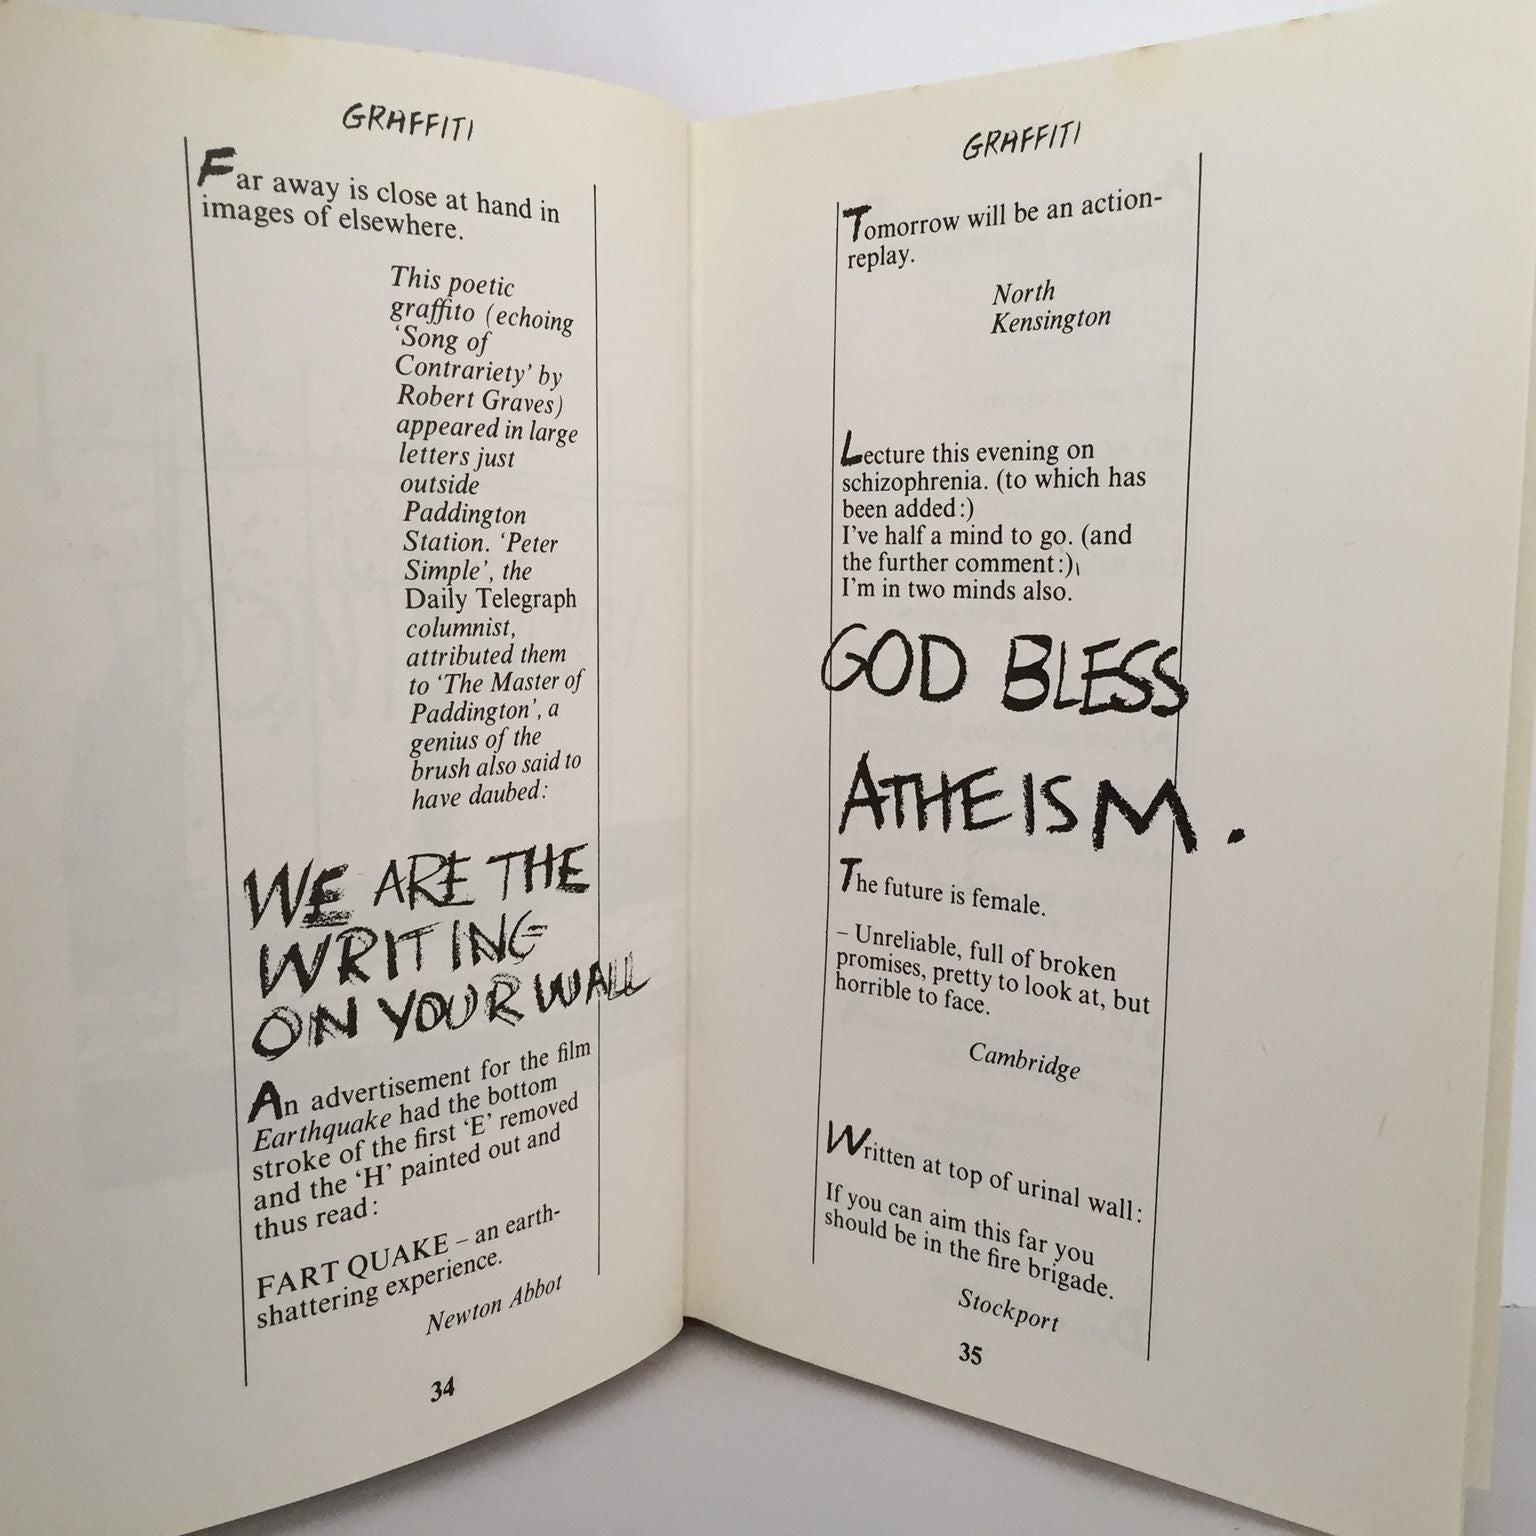 GRAFFITI
Far away is close at hand in
images of elsewhere.
This poetic
graffito (echoing
‘Song of
Contrariety’ by
Robert Graves)
appeared in large
letters just
outside
Paddington
Station. ‘Peter
Simple’, the
Daily Telegraph
columnist,
attributed them
to ‘The Master of
Paddington’, a
genius of the
brush also said to
have daubed:
WE ARE THE
WRITING
ON YOUR WALL
An advertisement for the film
Earthquake had the bottom
stroke of the first ‘E’ removed
and the ‘H’ painted out and
thus read:
FART QUAKE – an earth-
shattering experience.
Newton Abbot
34
GRAFFITI
Tomorrow will be an action-
replay.
North
Kensington
Lecture this evening on
schizophrenia. (to which has
been added:)
I’ve half a mind to go. (and
the further comment:)
I’m in two minds also.
GOD BLESS
ATHEISM.
The future is female.
– Unreliable, full of broken
promises, pretty to look at, but
horrible to face.
Cambridge
Written at top of urinal wall:
If you can aim this far you
should be in the fire brigade.
Stockport
35